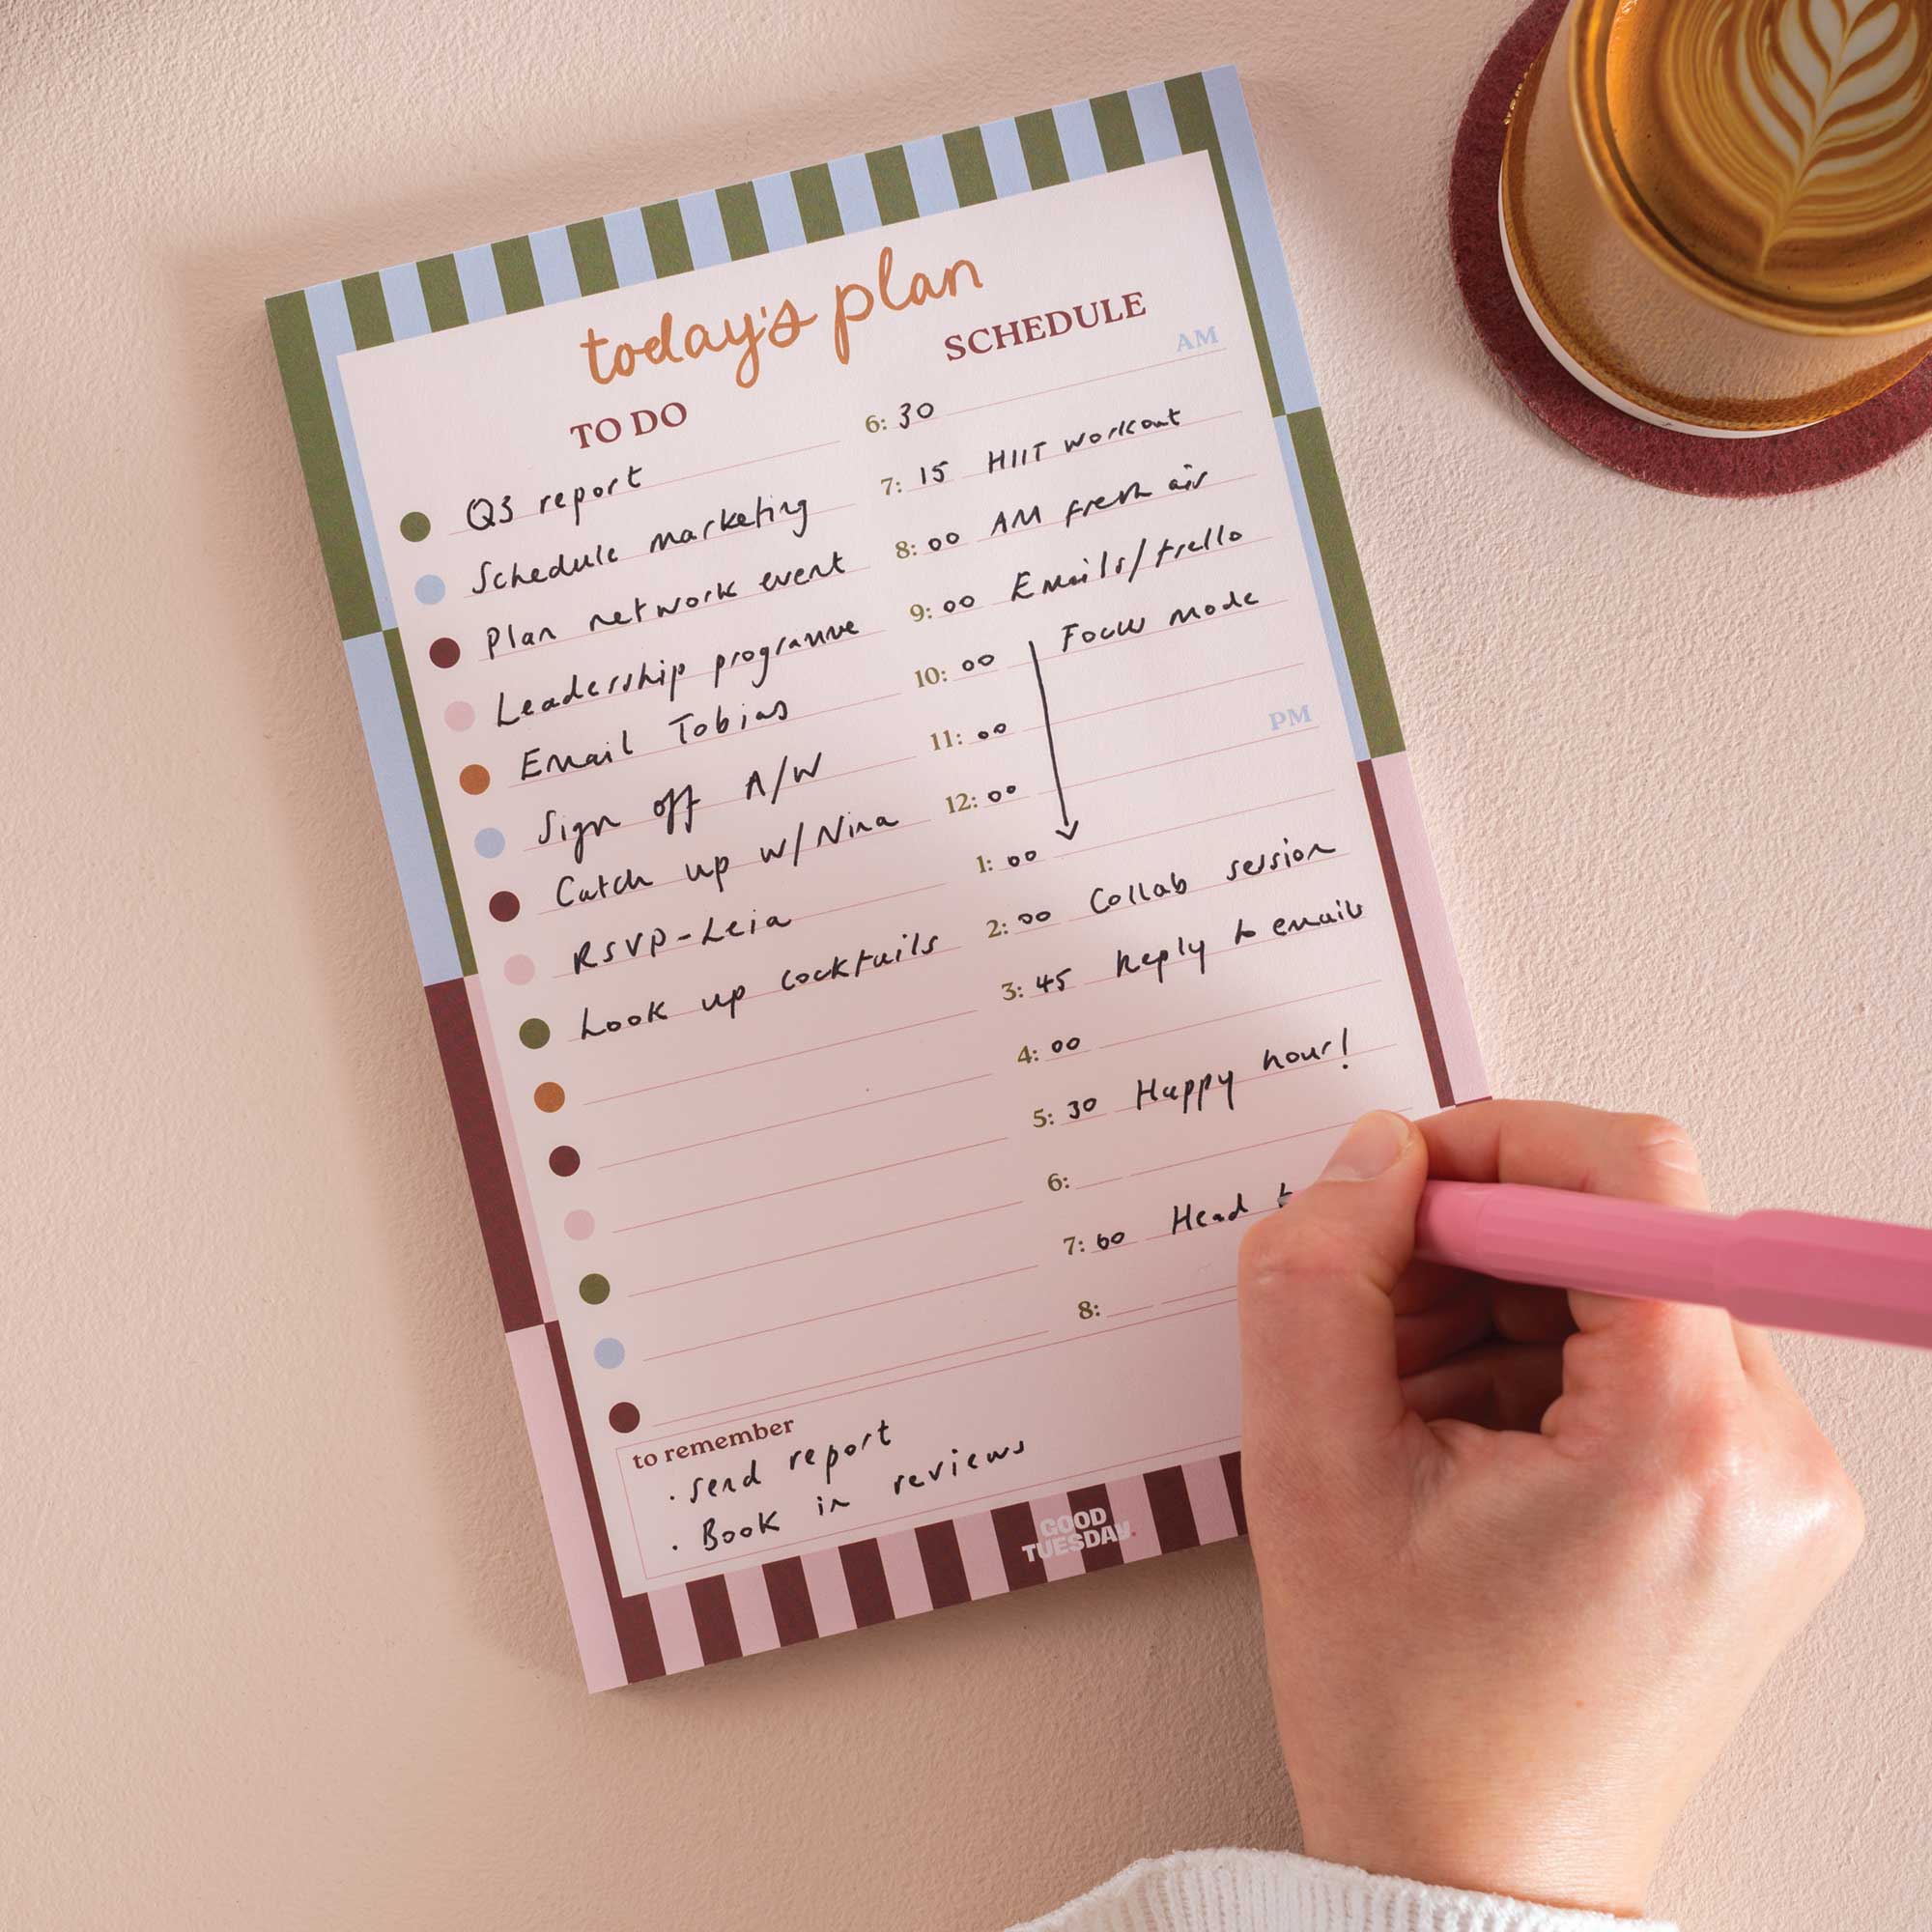 today's plan
TO DO
Q3 report
Schedule marketing
Plan network event
Leadership programme
Email Tobias
Sign off A/W
Catch up w/Nina
RSVP-Leia
Look up cocktails
SCHEDULE
AM
6: 30
7: 15 HIIT workout
8: 00 AM fresh air
9: 00 Emails/trello
10: 00 Focus mode
11: 00
PM
12: 00
1: 00
2: 00 Collab session
3: 45 Reply to emails
4: 00
5: 30 Happy hour!
6:
7: 00 Head
8:
to remember
· send report
· Book in reviews
GOOD
TUESDAY.